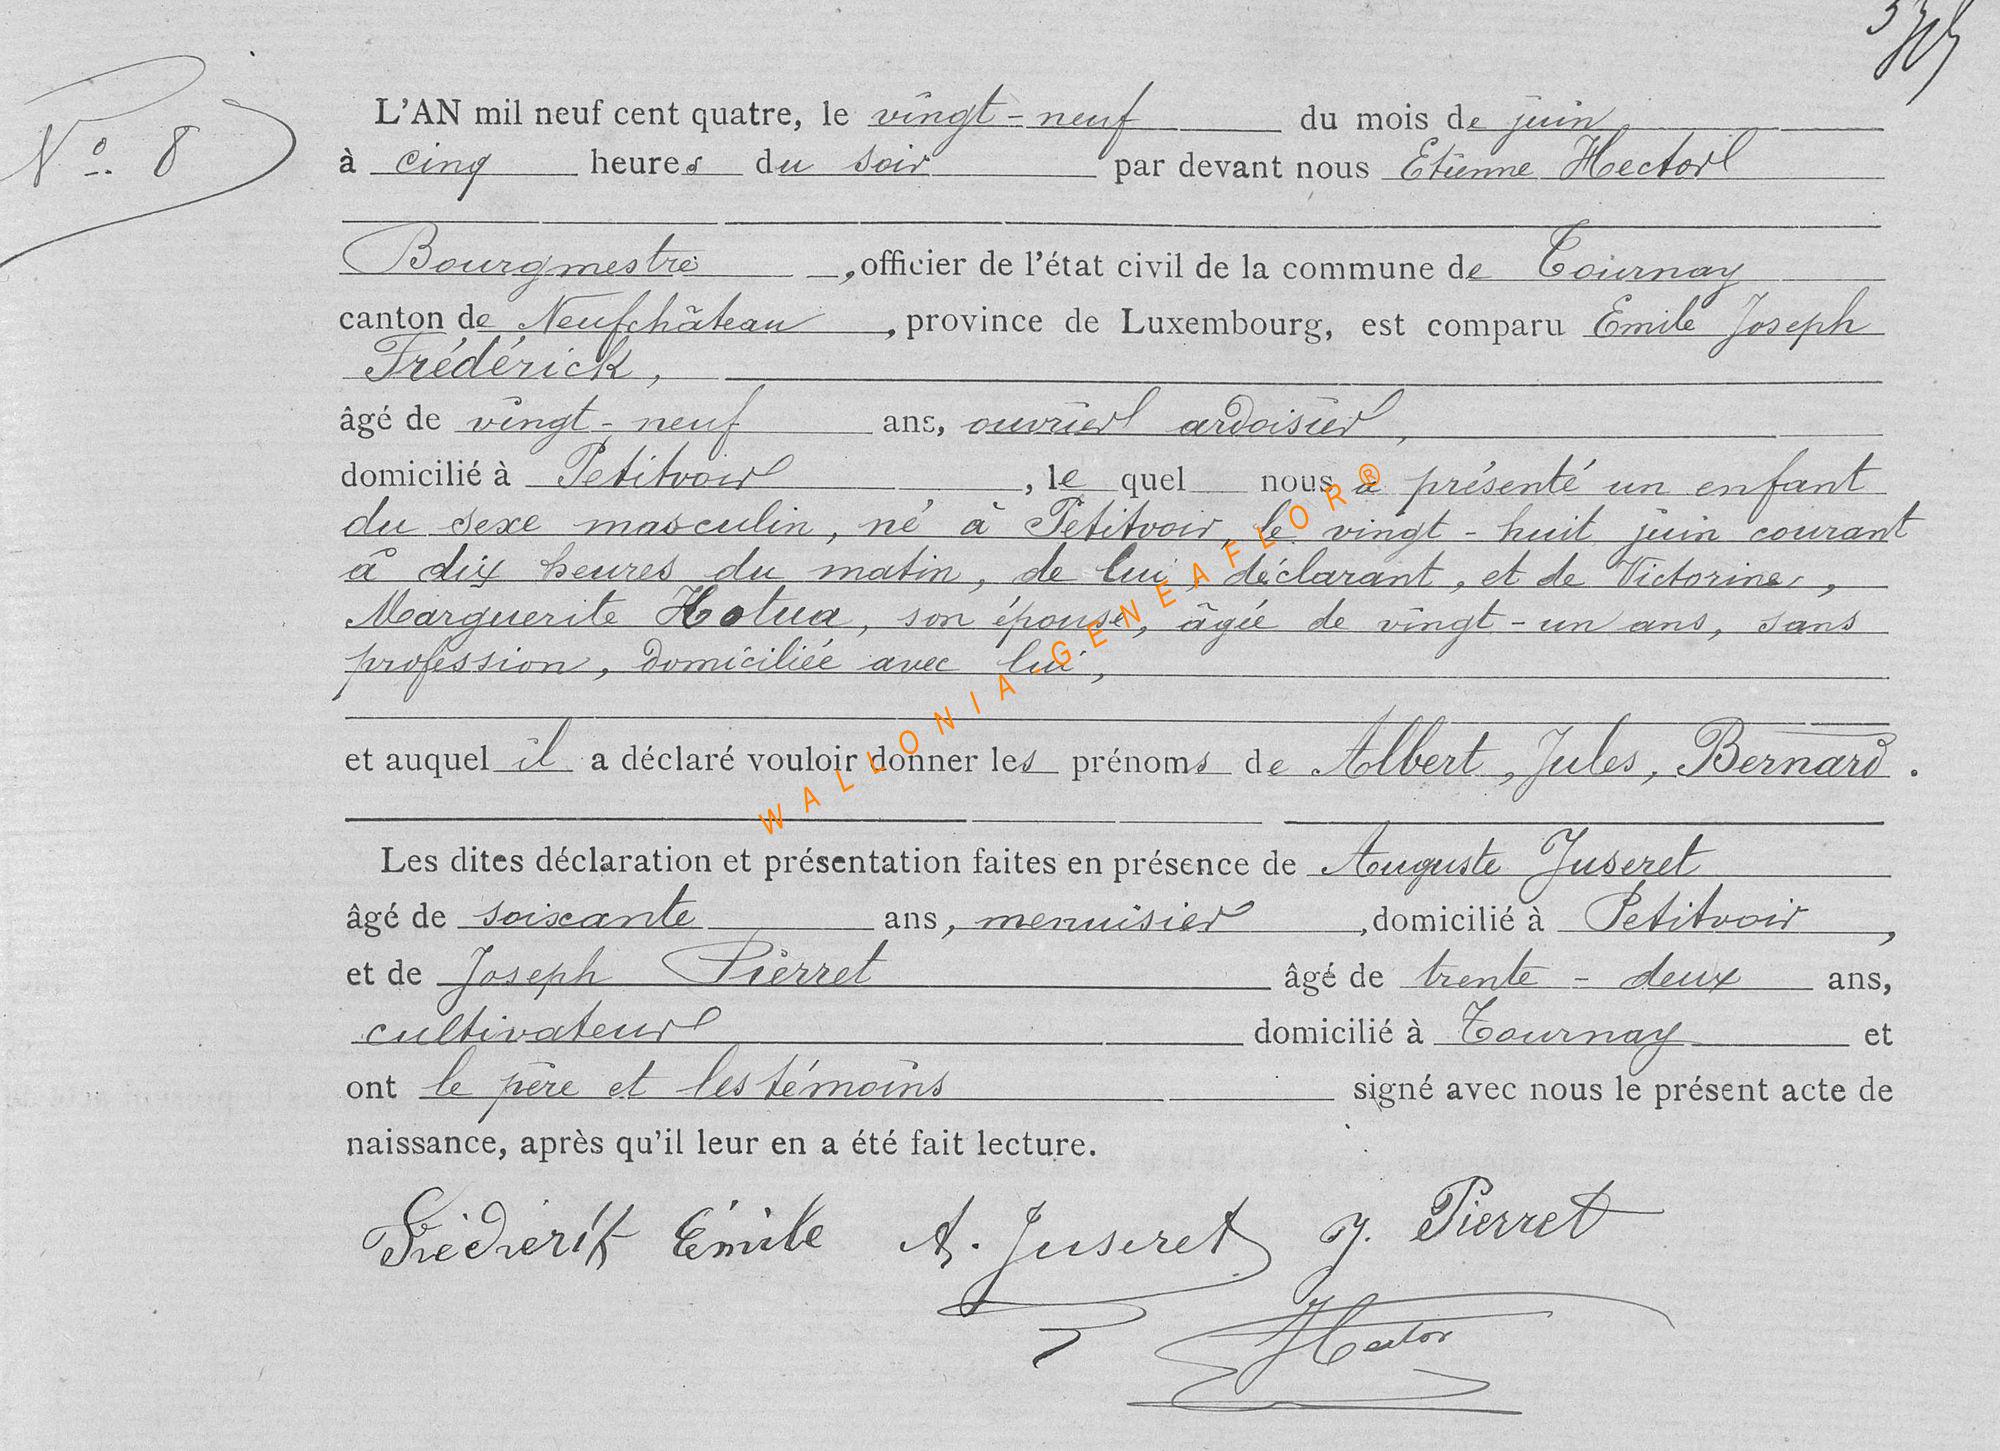 N° 8
L'AN mil neuf cent quatre, le vingt-neuf du mois de juin
à cinq heures du soir par devant nous Etienne Hector
Bourgmestre, officier de l'état civil de la commune de Tournay
canton de Neufchâteau, province de Luxembourg, est comparu Emile Joseph
Frédérick,
âgé de vingt-neuf ans, ouvrier ardoisier,
domicilié à Petitvoir, le quel nous a présenté un enfant
du sexe masculin, né à Petitvoir, le vingt-huit juin courant
à dix heures du matin, de lui, déclarant, et de Victorine,
Marguerite Hotua, son épouse, âgée de vingt-un ans, sans
profession, domiciliée avec lui,
et auquel il a déclaré vouloir donner les prénoms de Albert, Jules, Bernard.
Les dites déclaration et présentation faites en présence de Auguste Juseret
âgé de soixante ans, menuisier, domicilié à Petitvoir,
et de Joseph Pierret âgé de trente-deux ans,
cultivateur domicilié à Tournay et
ont le père et les témoins signé avec nous le présent acte de
naissance, après qu'il leur en a été fait lecture.
Frédérik Emile A. Juseret J. Pierret
Hector
WALLONIA-GENEAFLOR®